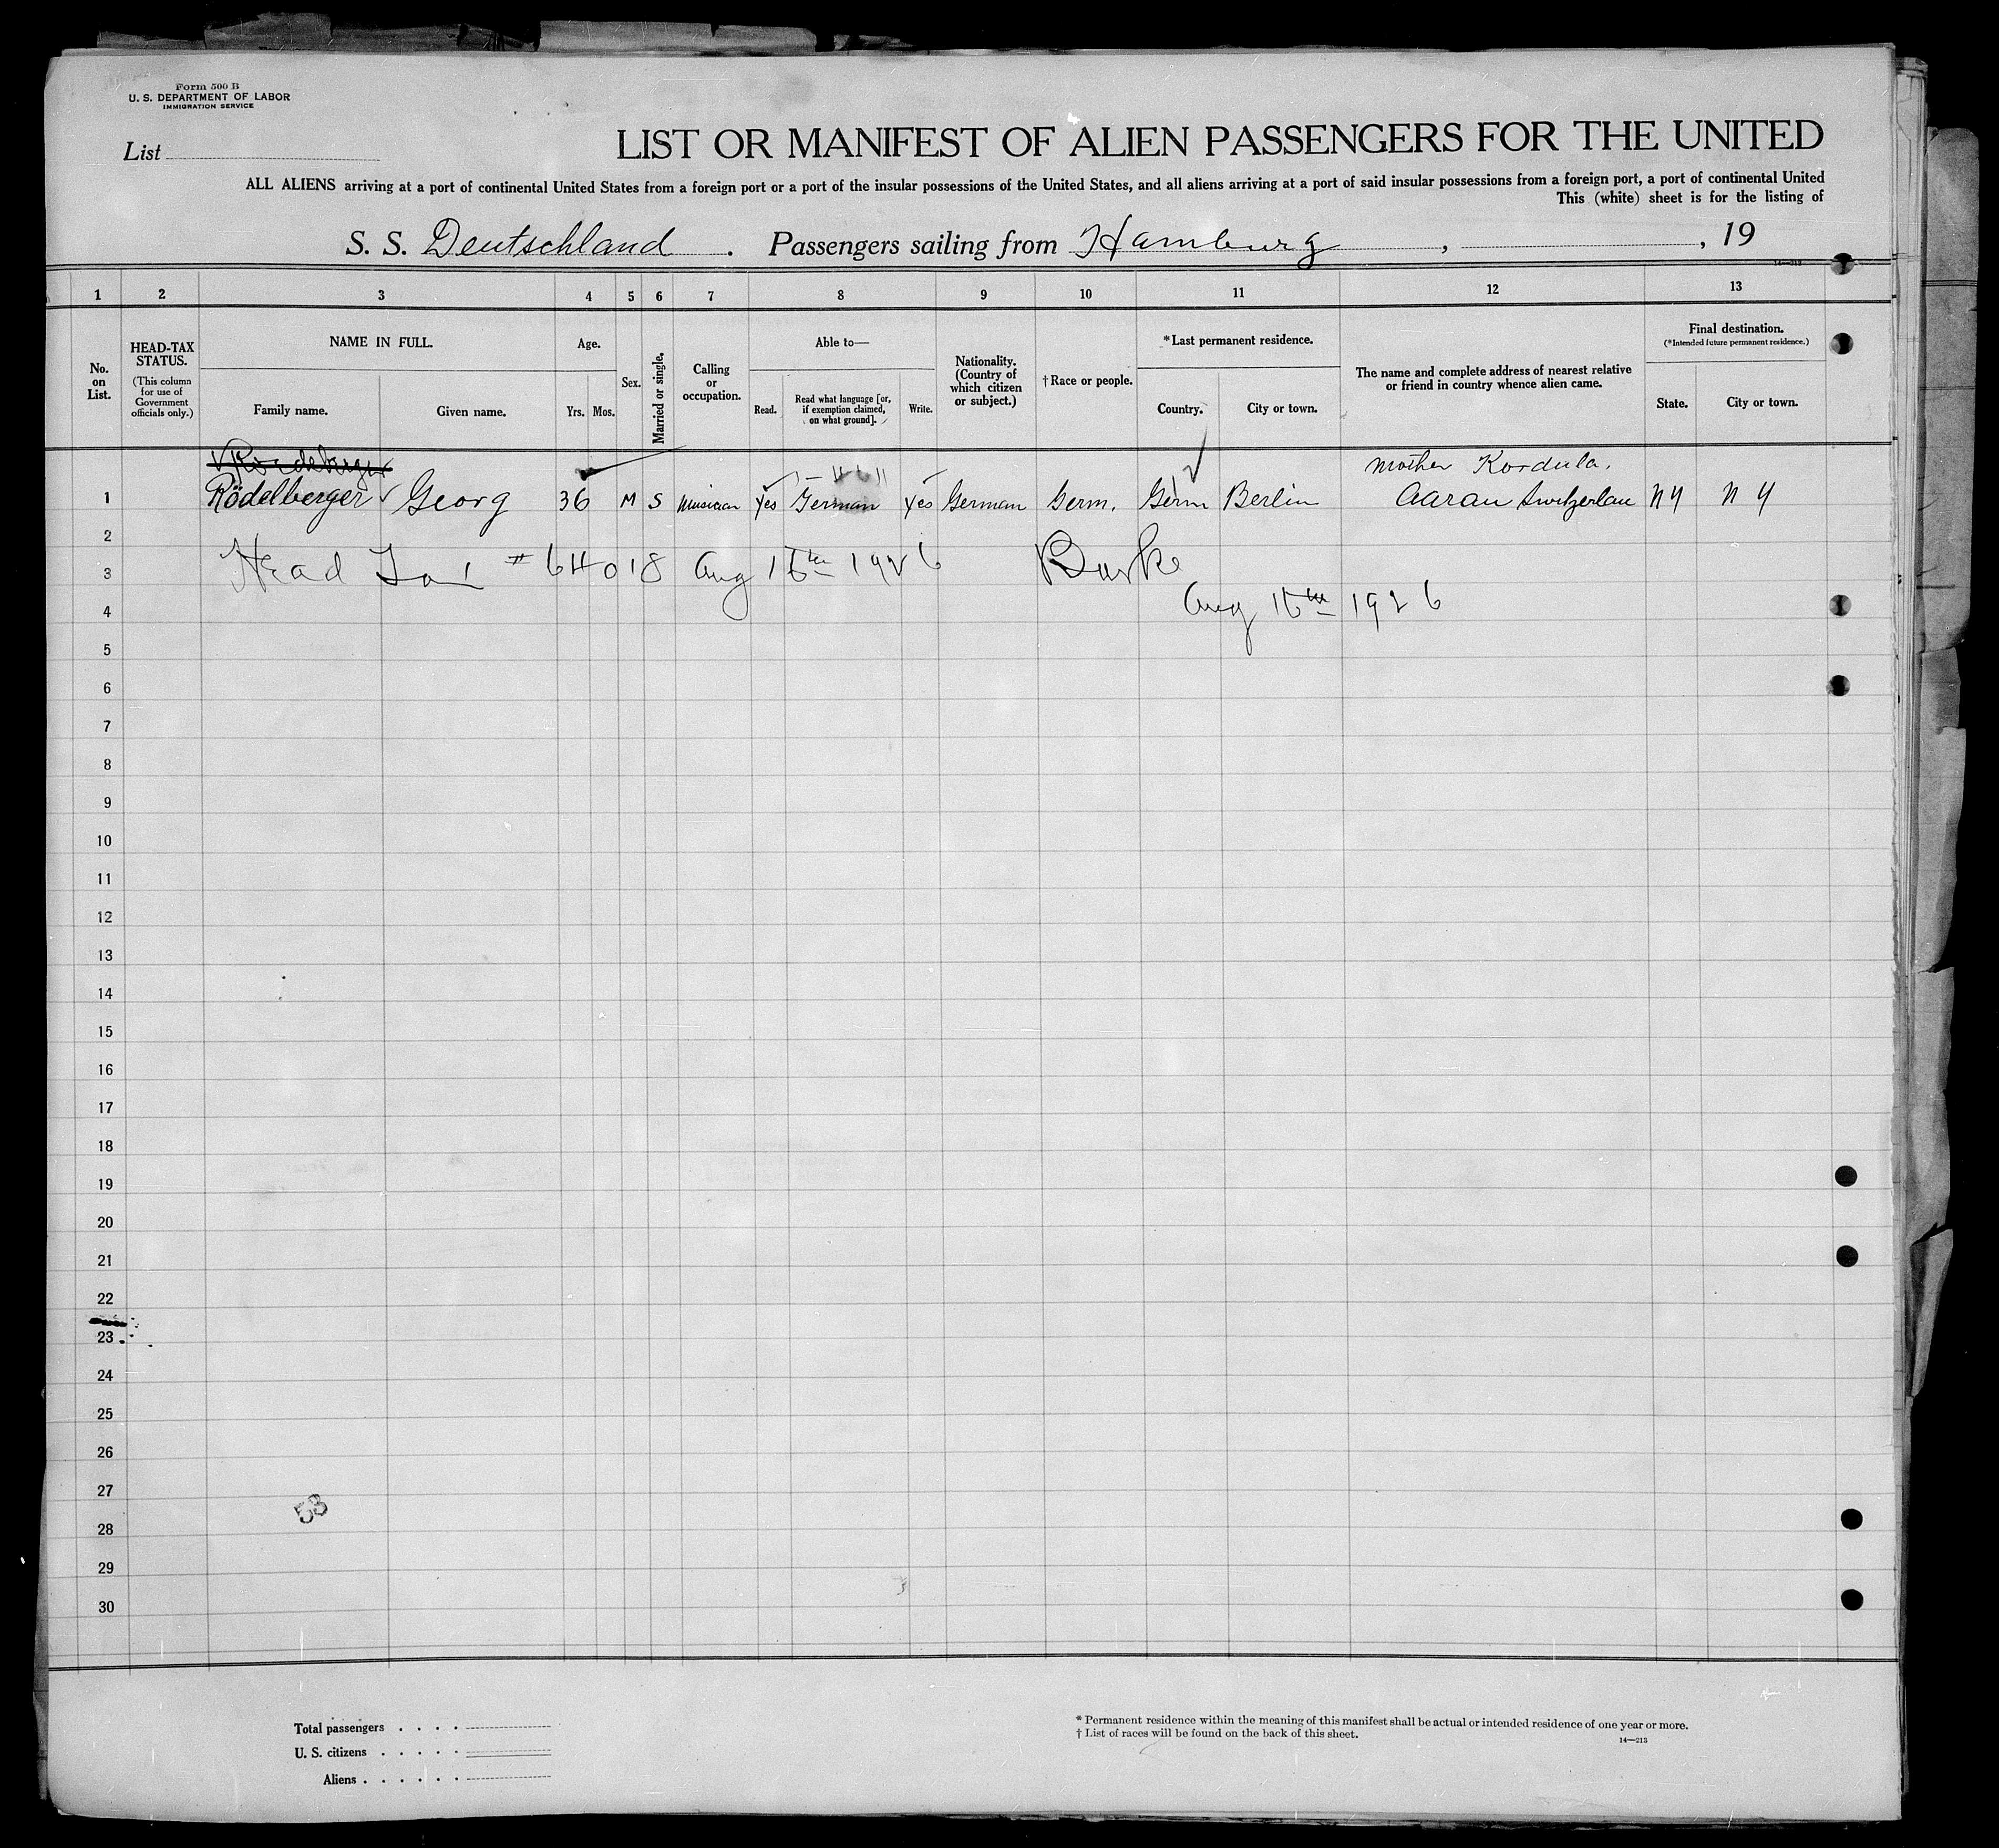 Form 500 B
U. S. DEPARTMENT OF LABOR
IMMIGRATION SERVICE
List
LIST OR MANIFEST OF ALIEN PASSENGERS FOR THE UNITED
ALL ALIENS arriving at a port of continental United States from a foreign port or a port of the insular possessions of the United States, and all aliens arriving at a port of said insular possessions from a foreign port, a port of continental United
This (white) sheet is for the listing of
S. S. Deutschland . Passengers sailing from Hamburg , , 19
14—213
1 2 3 4 5 6 7 8 9 10 11 12 13
No. on List.
HEAD-TAX STATUS.
(This column for use of Government officials only.)
NAME IN FULL.
Family name. Given name.
Age.
Yrs. Mos.
Sex.
Married or single.
Calling or occupation.
Able to—
Read. Read what language [or, if exemption claimed, on what ground]. Write.
Nationality. (Country of which citizen or subject.)
† Race or people.
* Last permanent residence.
Country. City or town.
The name and complete address of nearest relative or friend in country whence alien came.
Final destination.
(*Intended future permanent residence.)
State. City or town.
mother Kordula.
1 Rödelberger Georg 36 M S Musician Yes German Yes German Germ. Germ Berlin Aarau Switzerlan N Y N Y
2
3 Head Tax # 64018 Aug 16th 1926 Burke
4 Aug 16th 1926
5
6
7
8
9
10
11
12
13
14
15
16
17
18
19
20
21
22
23
24
25
26
27
53
28
29
30
Total passengers . . . .
U. S. citizens . . . . .
Aliens . . . . . .
* Permanent residence within the meaning of this manifest shall be actual or intended residence of one year or more.
† List of races will be found on the back of this sheet.
14—213